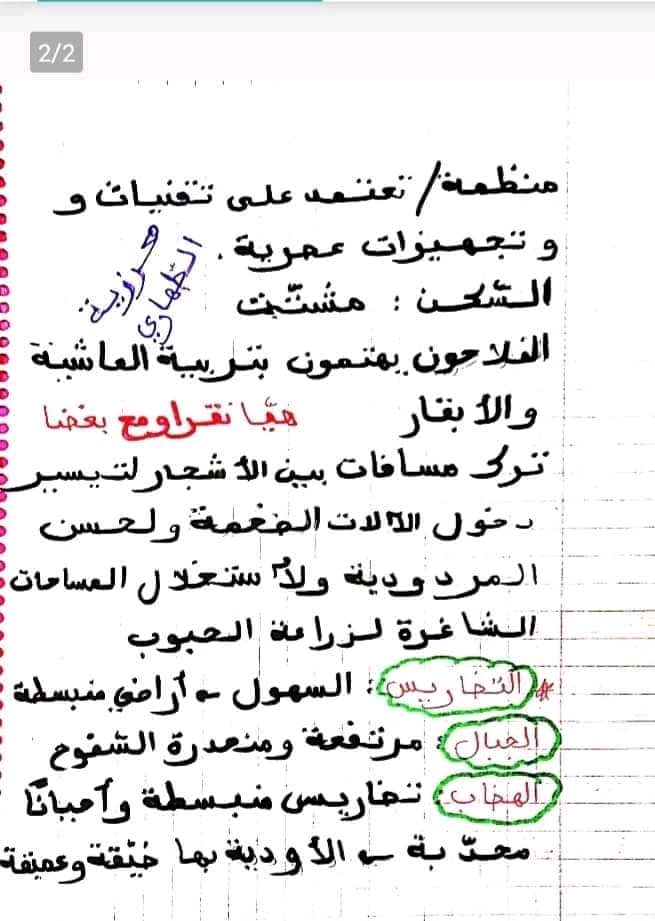 2/2
منظمة/ تعتمد على تقنيات و
و تجهيزات عصرية .
حرزية
الظهاري
السّكن : مشتّت
الفلاحون يهتمون بتربية الماشية
والأبقار
هيّا نقراو مع بعضنا
ترك مسافات بين الأشجار لتيسير
دخول الآلات الضخمة ولحسن
المردودية ولاستغلال المساحات
الشاغرة لزراعة الحبوب
* التضاريس : السهول ← أراضي منبسطة
الجبال : مرتفعة ومنحدرة السّفوح
الهضاب : تضاريس منبسطة وأحيانًا
محدّبة ← الأودية بها ضيّقة وعميقة